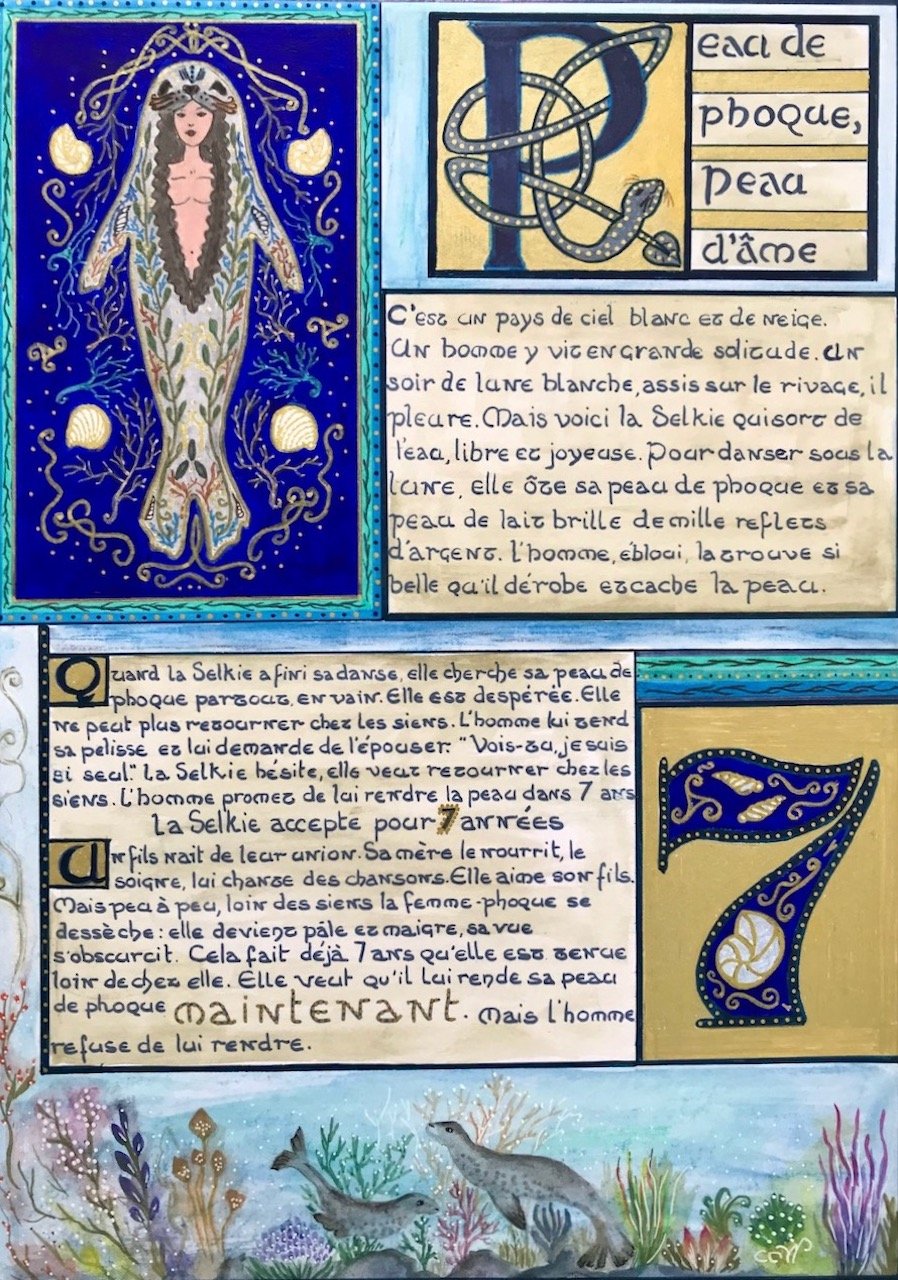 Peau de
phoque,
peau
d'âme
C'est un pays de ciel blanc et de neige.
Un homme y vit en grande solitude. Un
soir de lune blanche, assis sur le rivage, il
pleure. Mais voici la Selkie qui sort de
l'eau, libre et joyeuse. Pour danser sous la
lune, elle ôte sa peau de phoque et sa
peau de lait brille de mille reflets
d'argent. L'homme, ébloui, la trouve si
belle qu'il dérobe et cache la peau.
Quand la Selkie a fini sa danse, elle cherche sa peau de
phoque partout, en vain. Elle est despérée. Elle
ne peut plus retourner chez les siens. L'homme lui tend
sa pelisse et lui demande de l'épouser. "Vois-tu, je suis
si seul." La Selkie hésite, elle veut retourner chez les
siens. L'homme promet de lui rendre la peau dans 7 ans
La Selkie accepte pour 7 années
Un fils nait de leur union. Sa mère le nourrit, le
soigne, lui chante des chansons. Elle aime son fils.
Mais peu à peu, loin des siens la femme-phoque se
dessèche : elle devient pâle et maigre, sa vue
s'obscurcit. Cela fait déjà 7 ans qu'elle est tenue
loin de chez elle. Elle veut qu'il lui rende sa peau
de phoque maintenant. Mais l'homme
refuse de lui rendre.
7